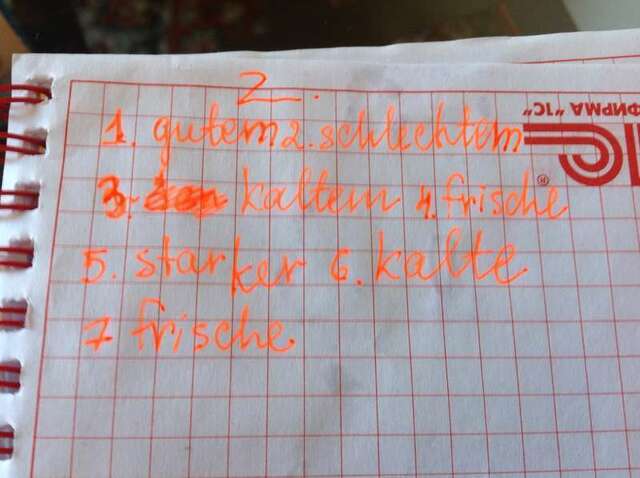 2
1. gutem 2. schlechtem
3. kaltem 4. frische
5. starker 6. kalte
7 frische.
ФИРМА "1С"
1С®